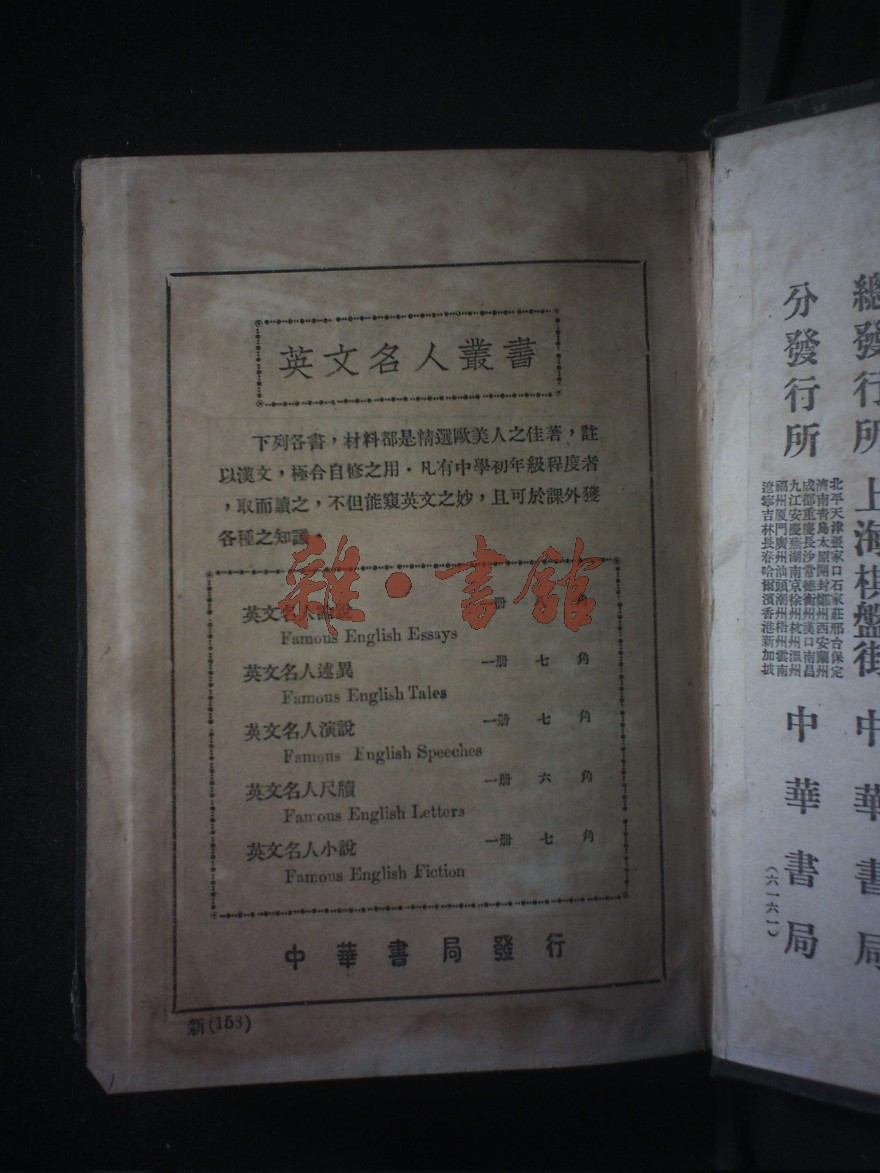 英文名人叢書
下列各書，材料都是精選歐美人之佳著，註
以漢文，極合自修之用。凡有中學初年級程度者
，取而讀之，不但能窺英文之妙，且可於課外獲
各種之知識。
雜·書館
英文名人論說 一册 角
Famous English Essays
英文名人述異 一册 七 角
Famous English Tales
英文名人演說 一册 七 角
Famous English Speeches
英文名人尺牘 一册 六 角
Famous English Letters
英文名人小說 一册 七 角
Famous English Fiction
中華書局發行
新(158)
總發行所 上海棋盤街 中華書局
分發行所
北平天津張家口石家莊邢台保定
濟南青島太原開封鄭州西安蘭州
成都重慶長沙常德衡州漢口南昌
九江安慶蕪湖南京徐州杭州溫州
福州厦門廣州汕頭潮州梧州雲南
遼寧吉林長春哈爾濱香港新加坡
中華書局
(六一六一)